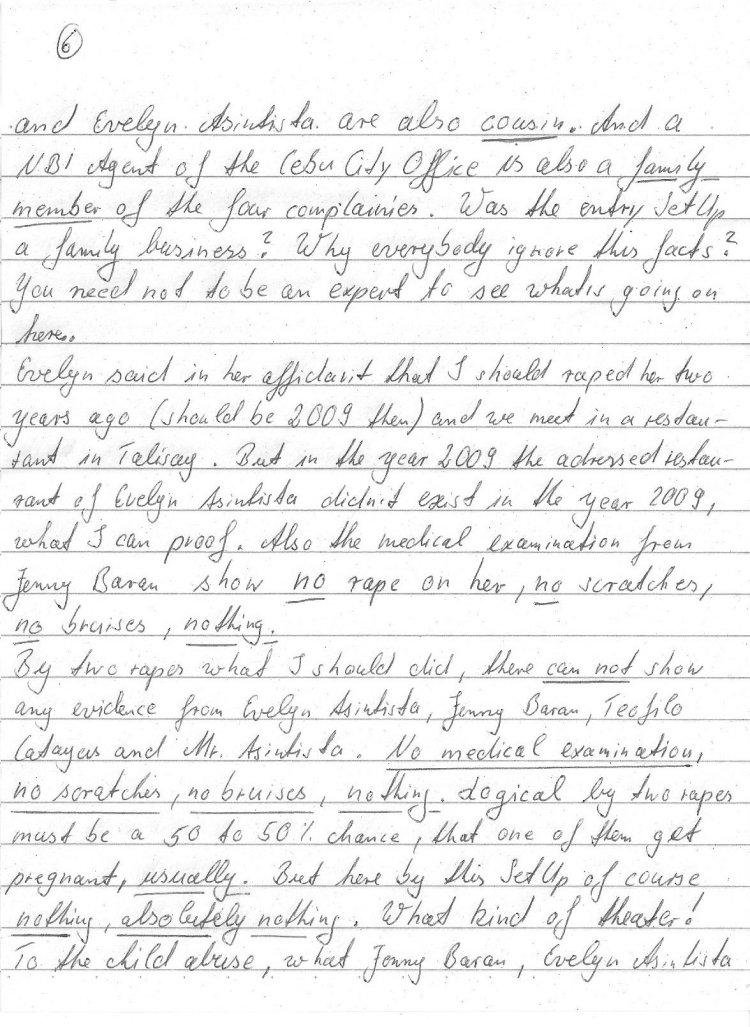 6
and Evelyn Asintista are also cousin. And a
NBI Agent of the Cebu City Office is also a family
member of the four complainies. Was the entry SetUp
a family business? Why everybody ignore this facts?
You need not to be an expert to see what is going on
here..
Evelyn said in her affidavit that I should raped her two
years ago (should be 2009 then) and we meet in a restau-
rant in Talisay. But in the year 2009 the adressed restau-
rant of Evelyn Asintista didn't exist in the year 2009,
what I can proof. Also the medical examination from
Jenny Baran show no rape on her, no scratches,
no bruises, nothing.
By two rapes what I should did, there can not show
any evidence from Evelyn Asintista, Jenny Baran, Teofilo
Catayas and Mr. Asintista. No medical examination,
no scratches, no bruises, nothing. Logical by two rapes
must be a 50 to 50% chance, that one of them get
pregnant, usually. But here by this SetUp of course
nothing, absolutely nothing. What kind of theater!
To the child abuse, what Jenny Baran, Evelyn Asintista